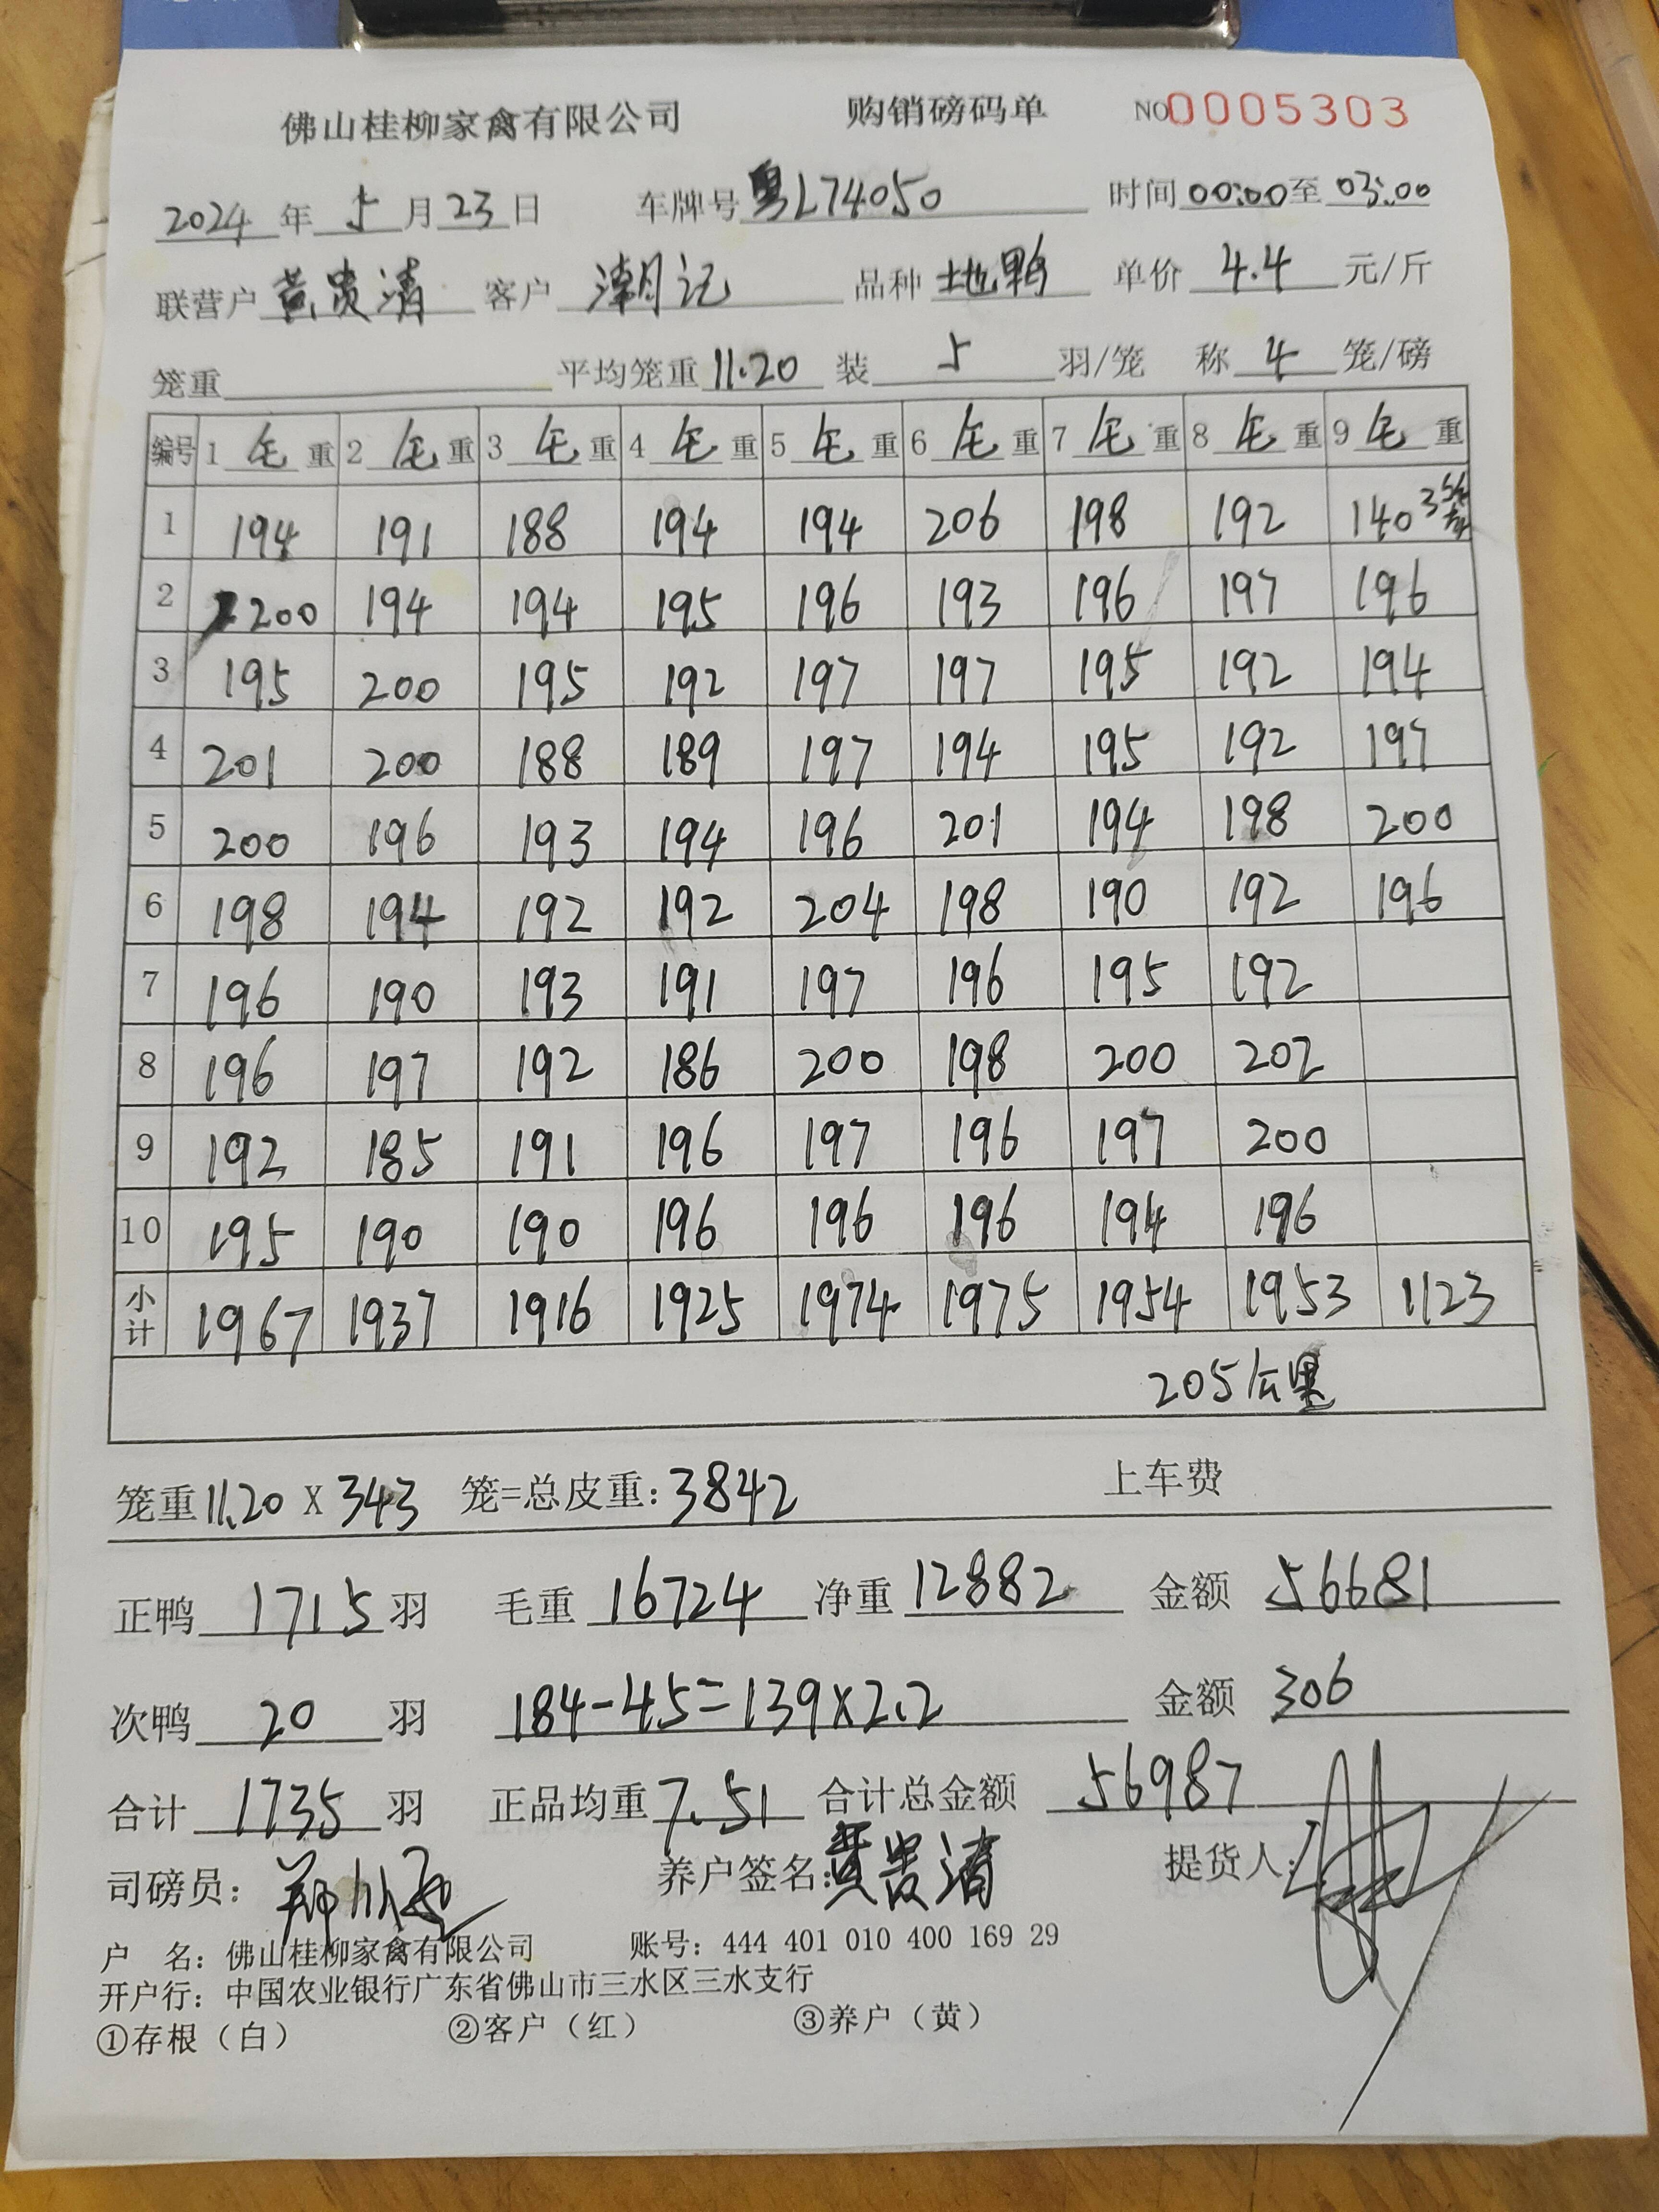 佛山桂柳家禽有限公司 购销磅码单 NO0005303
2024年5月23日 车牌号粤L74050 时间00:00至03:00
联营户黄贵清 客户潮记 品种土也鸭 单价4.4元/斤
笼重 平均笼重11.20 装5羽/笼 称4笼/磅
编号 1毛重 2毛重 3毛重 4毛重 5毛重 6毛重 7毛重 8毛重 9毛重
1 194 191 188 194 194 206 198 192 140 3笼
2 200 194 194 195 196 193 196 197 196
3 195 200 195 192 197 197 195 192 194
4 201 200 188 189 197 194 195 192 197
5 200 196 193 194 196 201 194 198 200
6 198 194 192 192 204 198 190 192 196
7 196 190 193 191 197 196 195 192
8 196 197 192 186 200 198 200 202
9 192 185 191 196 197 196 197 200
10 195 190 190 196 196 196 194 196
小计 1967 1937 1916 1925 1974 1975 1954 1953 1123
205公里
笼重11.20X343 笼=总皮重:3842 上车费
正鸭1715羽 毛重16724 净重12882 金额56681
次鸭20羽 184-45=139×2.2 金额306
合计1735羽 正品均重7.51 合计总金额56987
司磅员: 养户签名:黄贵清 提货人:
户 名:佛山桂柳家禽有限公司 账号:444 401 010 400 169 29
开户行:中国农业银行广东省佛山市三水区三水支行
①存根(白) ②客户(红) ③养户(黄)